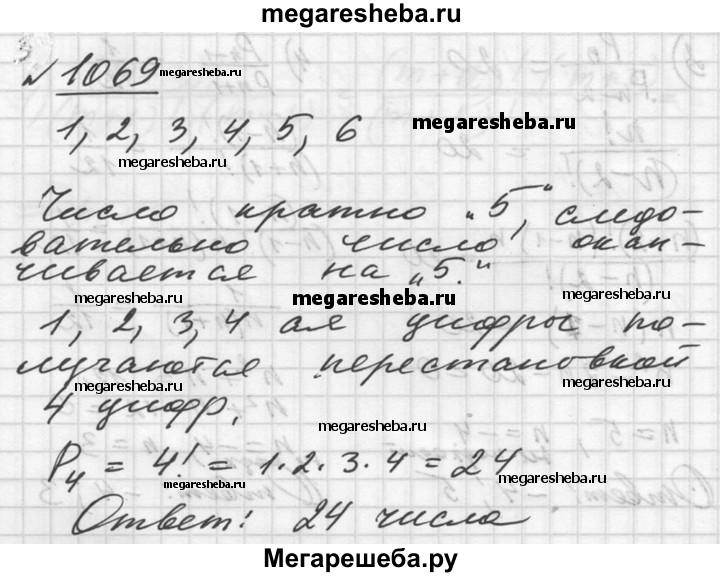 megaresheba.ru
№ 1069 megaresheba.ru
1, 2, 3, 4, 5, 6 megaresheba.ru
megaresheba.ru
Число кратно „5“, следо-
вательно число окан-
чивается на „5.“
megaresheba.ru megaresheba.ru megaresheba.ru
1, 2, 3, 4 ая цифры по-
лучаются перестановкой
megaresheba.ru megaresheba.ru
4 цифр.
megaresheba.ru
P₄ = 4! = 1·2·3·4 = 24
megaresheba.ru megaresheba.ru
Ответ: 24 числа
Мегарешеба.ру